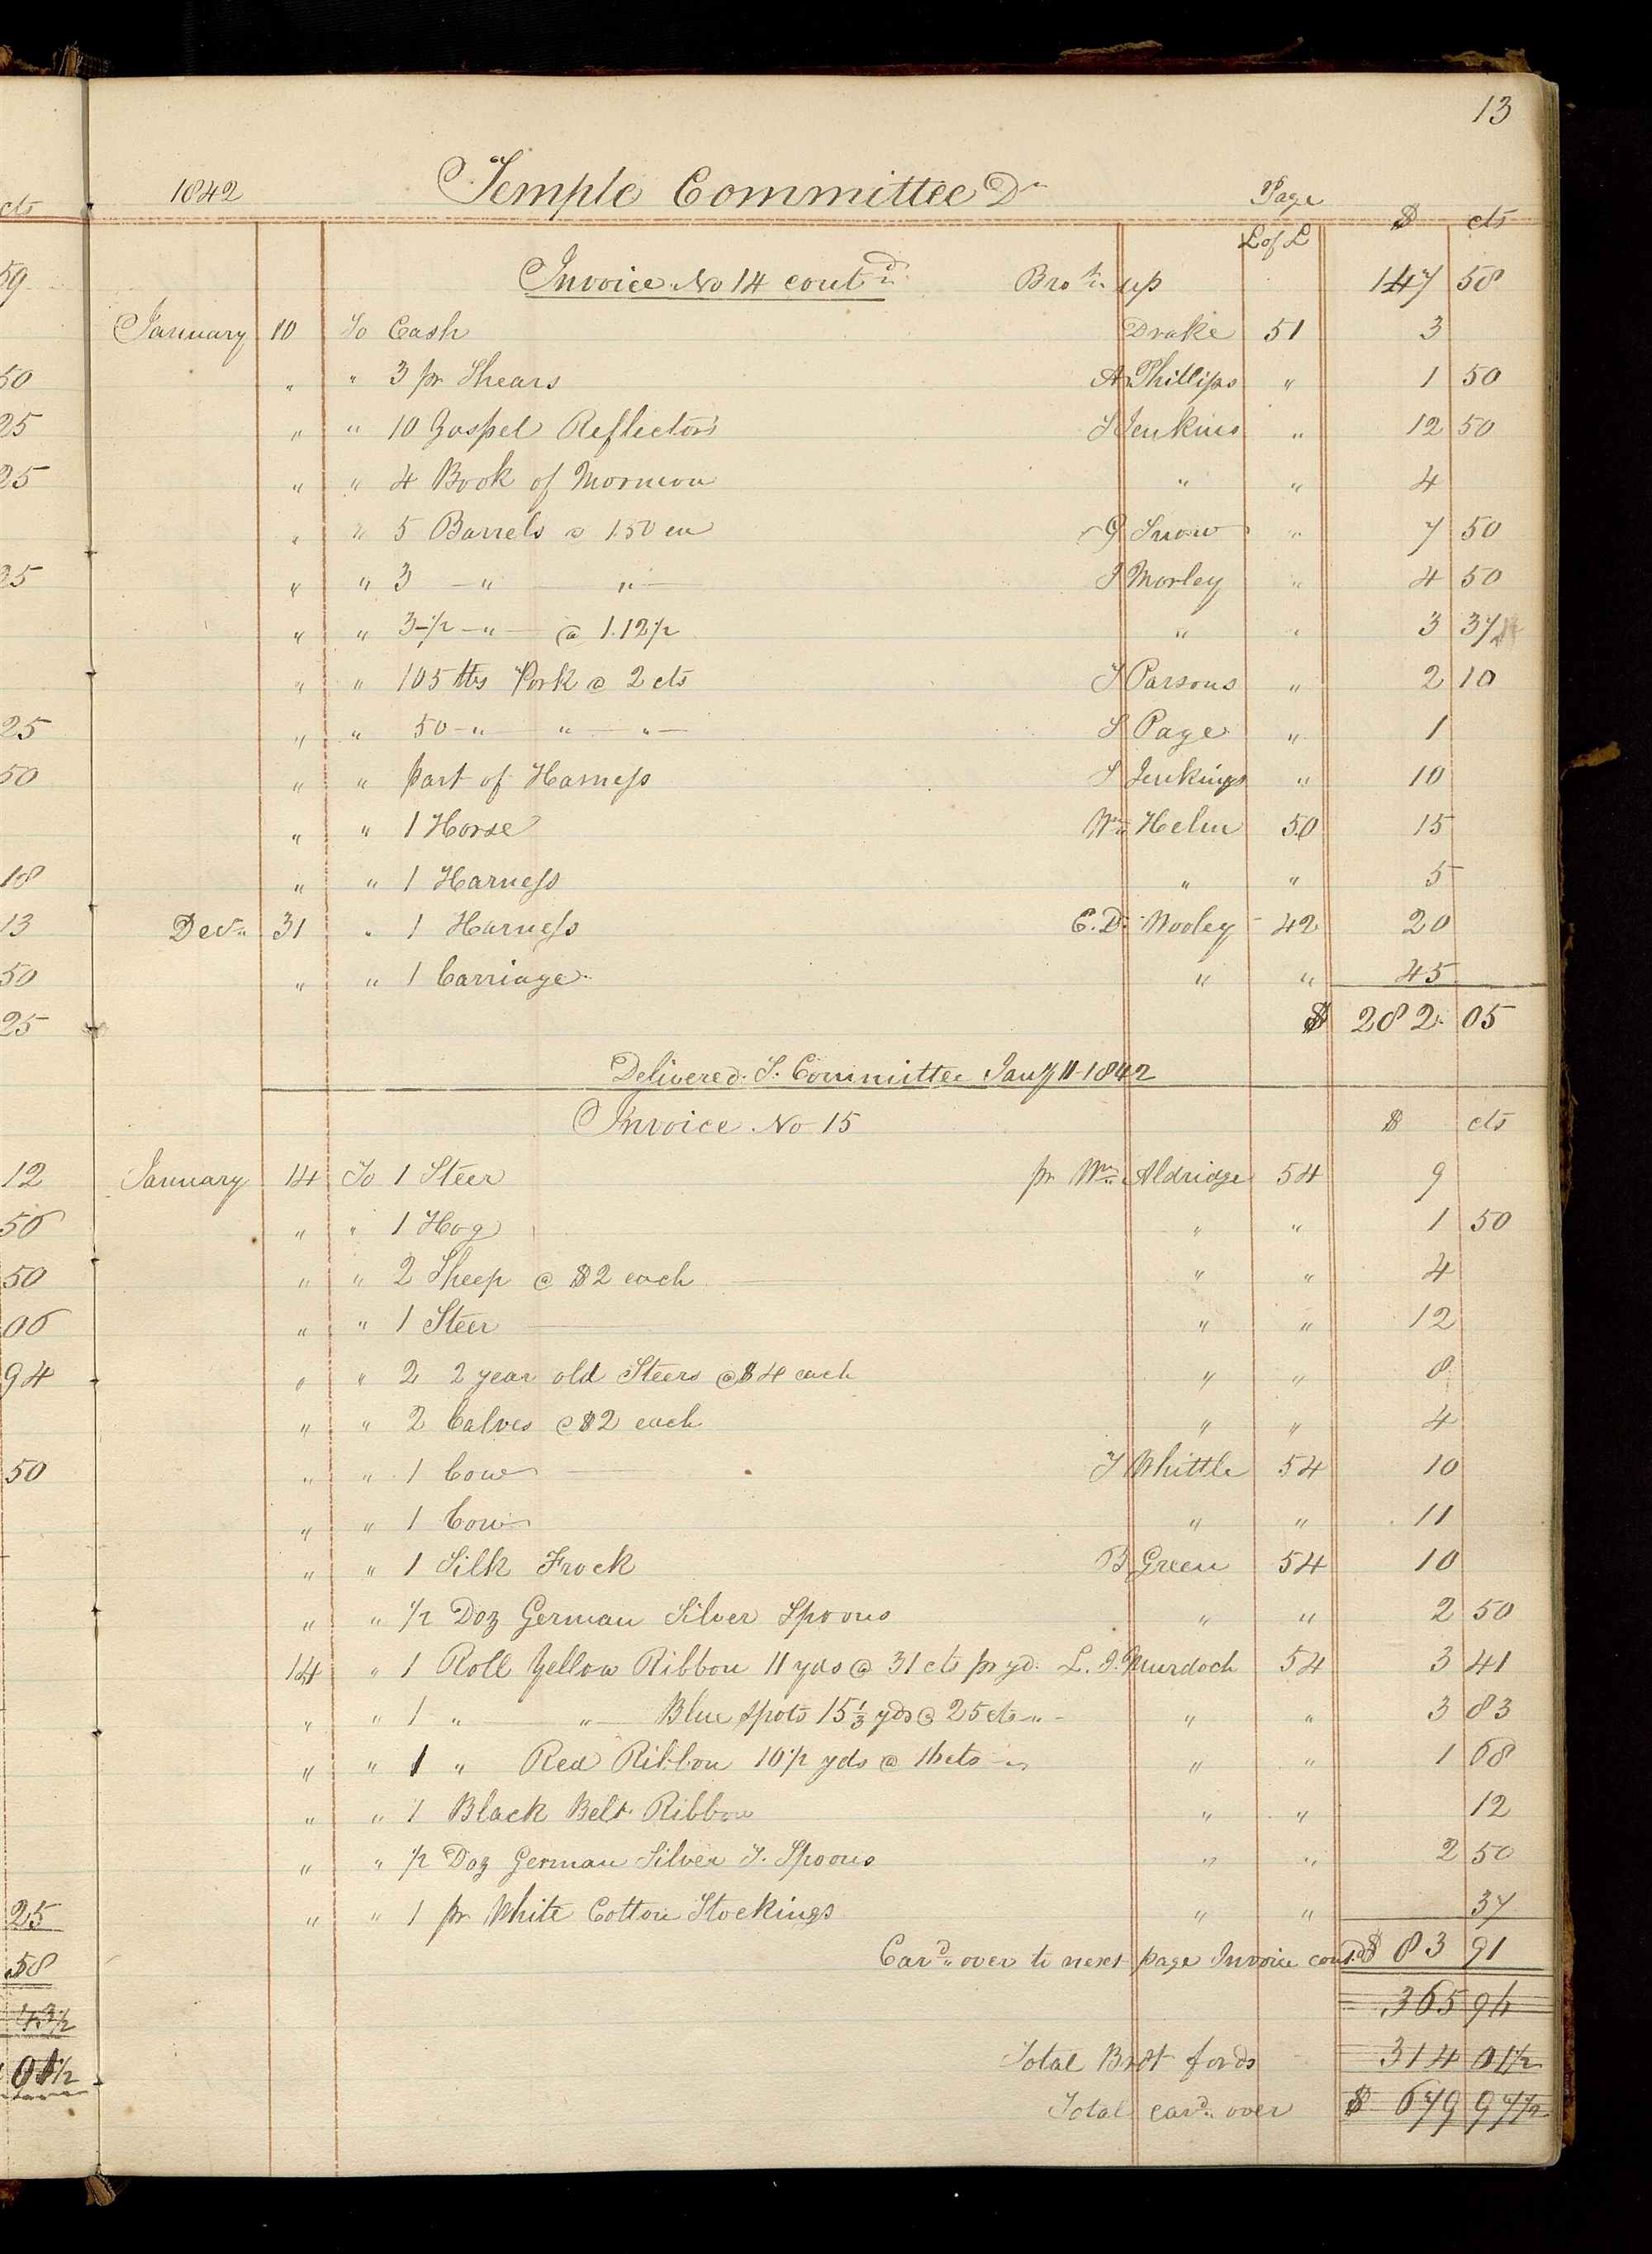 13
1842 Temple Committee Dr Page $ cts
L of L
Invoice No 14 contd Brot up 147 58
January 10 To Cash Drake 51 3
" " 3 pr Shears A Phillips " 1 50
" " 10 Gospel Reflectors S Jenkins " 12 50
" " 4 Book of Mormon " " 4
" " 5 Barrels @ 1.50 ea G Snow " 7 50
" " 3 - " - " - I Morley " 4 50
" " 3-1/2 - " - @ 1.12 1/2 " " 3 37
" " 105 lbs Pork @ 2 cts T Parsons " 2 10
" " 50 - " - " - " - S Page " 1
" " part of Harness S Jenkings " 10
" " 1 Horse Wm Helm 50 15
" " 1 Harness " " 5
Decr 31 " 1 Harness E. D. Wooley 42 20
" " 1 Carriage " " 45
$ 282. 05
Delivered T. Committee Jany 11-1842
Invoice No 15 $ cts
January 14 To 1 Steer pr Wm Aldridge 54 9
" " 1 Hog " " 1 50
" " 2 Sheep @ $2 each " " 4
" " 1 Steer " " 12
" " 2 2 year old Steers @ $4 each " " 8
" " 2 Calves @ $2 each " " 4
" " 1 Cow T Whittle 54 10
" " 1 Cow " " 11
" " 1 Silk Frock B Green 54 10
" " 1/2 Doz German Silver Spoons " " 2 50
14 " 1 Roll Yellow Ribbon 11 yds @ 31 cts pr yd. L. I. Murdoch 54 3 41
" " 1 " - " - Blue Spots 15 1/3 yds @ 25 cts - " - " " 3 83
" " 1 " Red Ribbon 10 1/2 yds @ 16 cts - " " " 1 68
" " 1 Black Belt Ribbon " " 12
" " 1/2 Doz German Silver T. Spoons " " 2 50
" " 1 pr White Cotton Stockings " " 37
Card over to next page Invoice contd $ 83 91
365 96
Total Brot fords 314 01 1/2
Total card over $ 679 97 1/2
cts
59
50
25
25
25
25
50
18
13
50
25
12
50
50
06
94
50
25
58
43 1/2
01 1/2